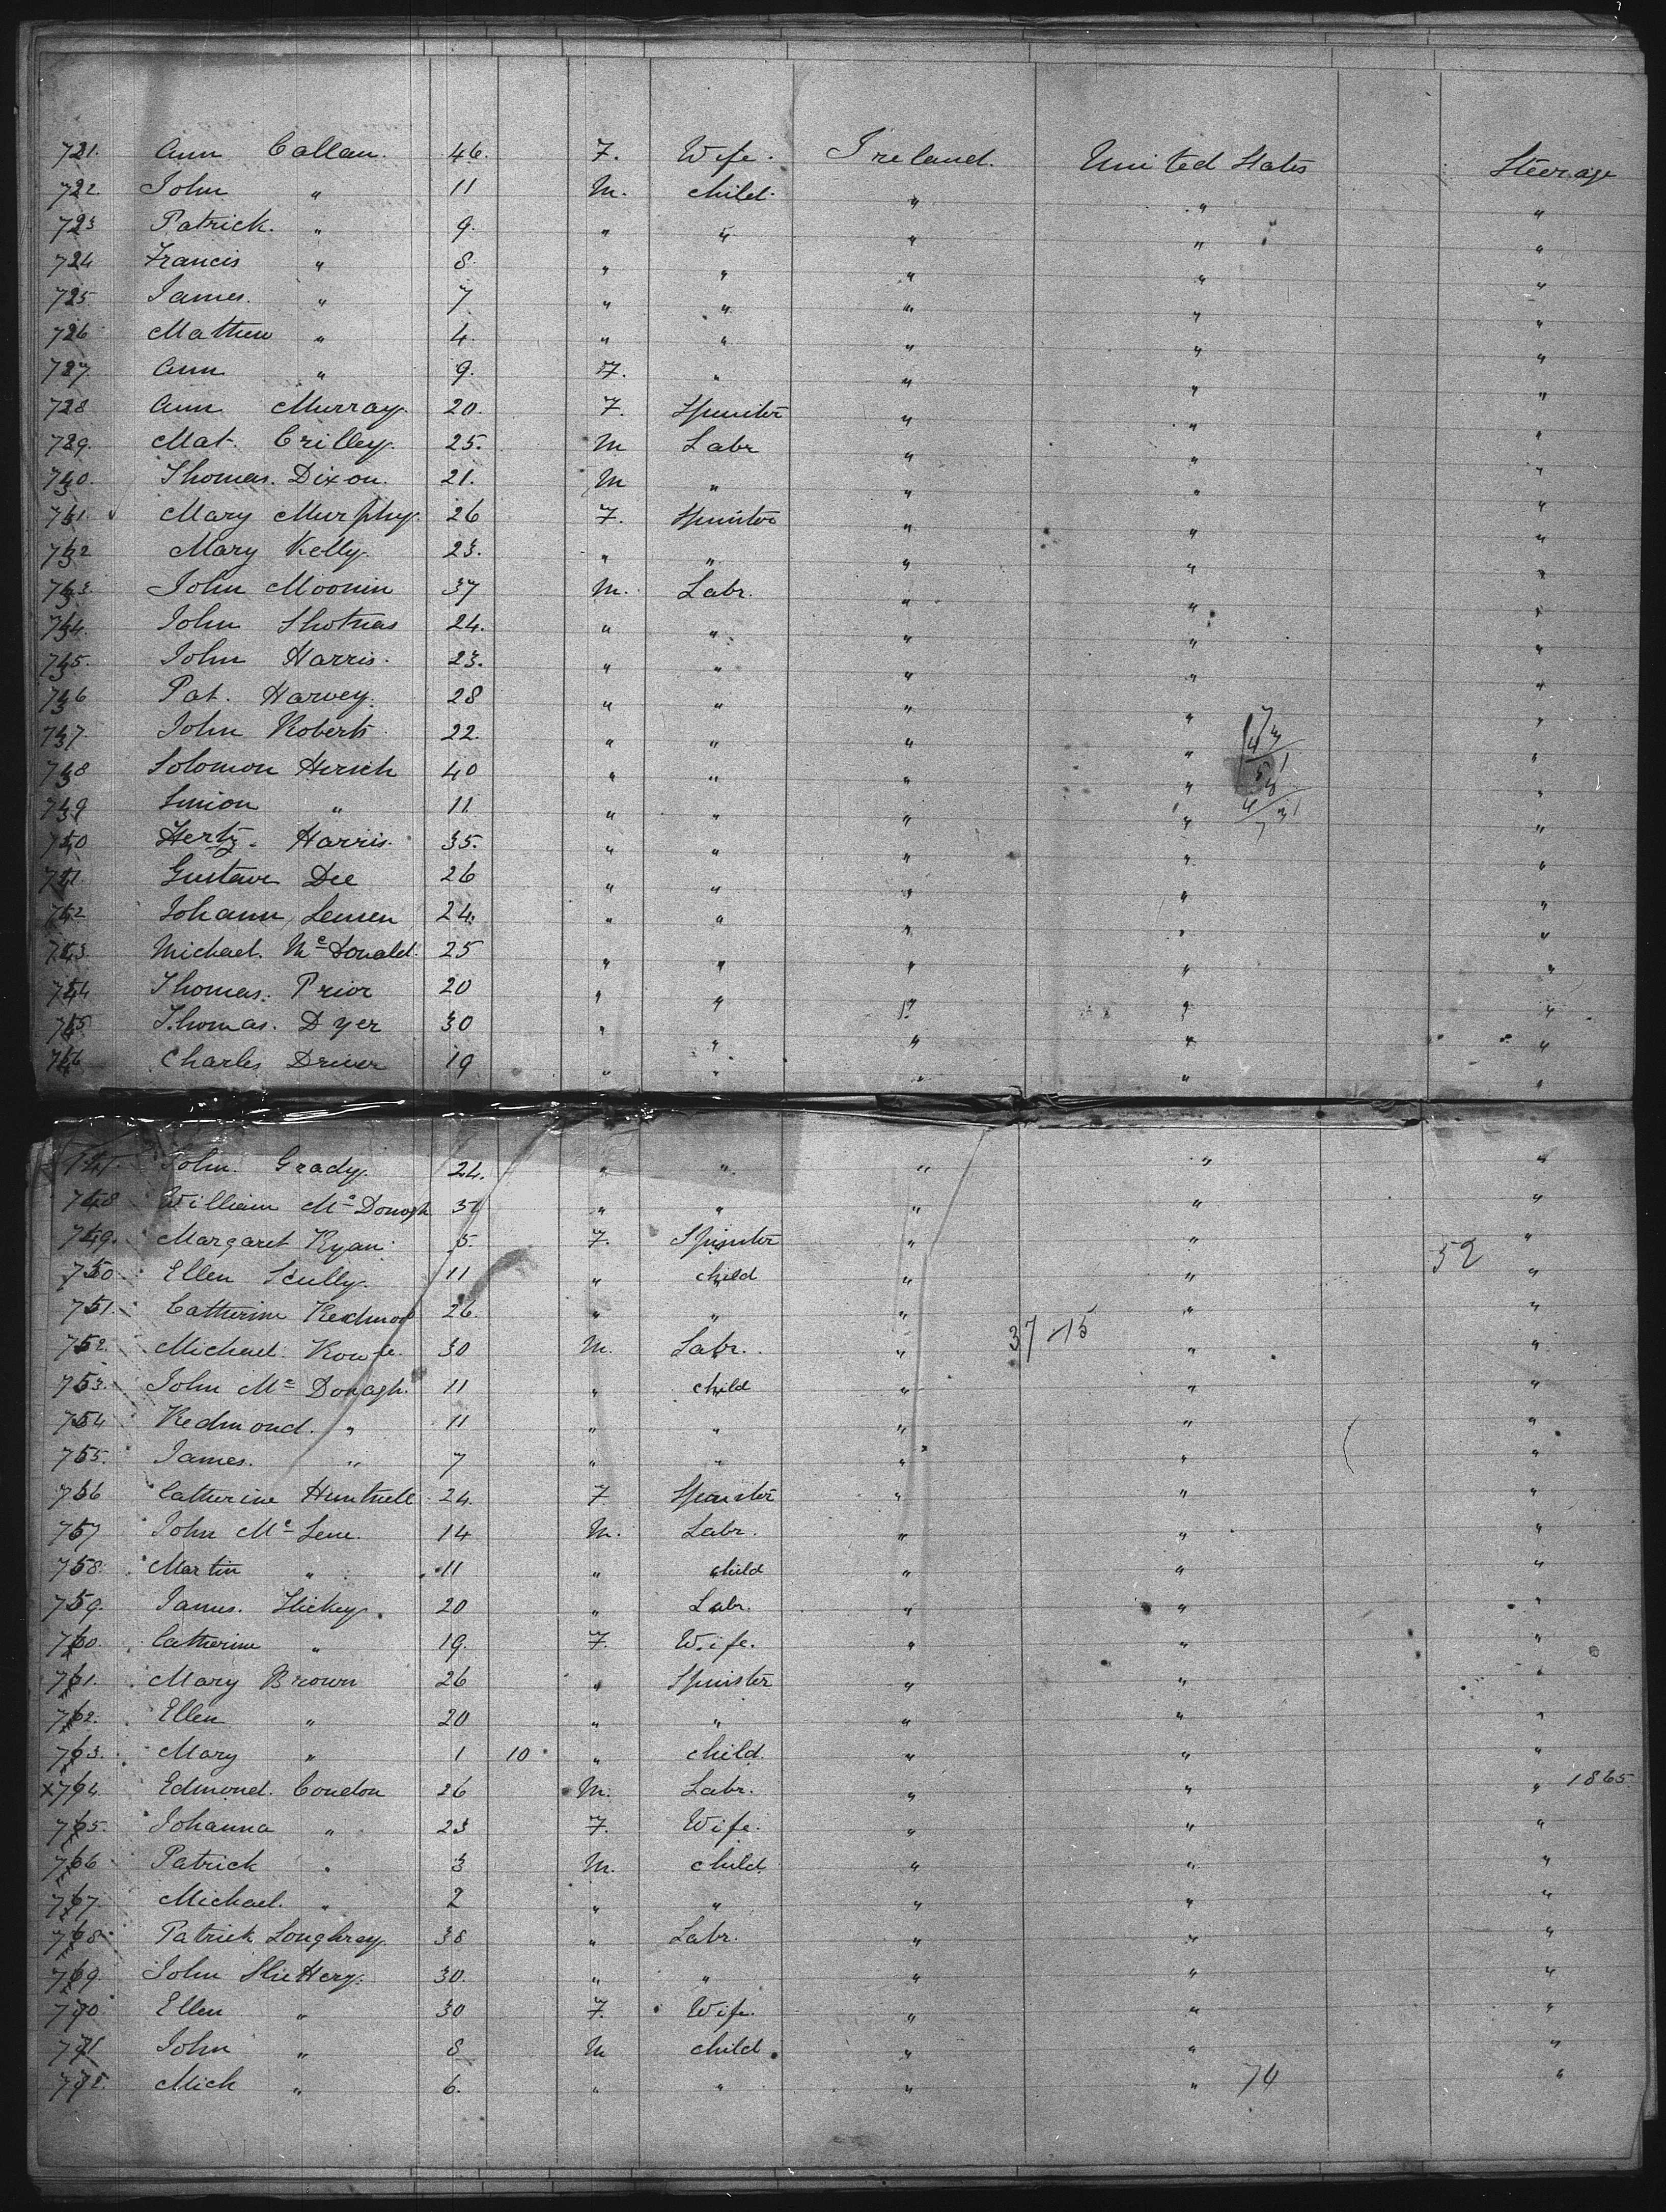 721. Ann Callan. 46. F. Wife. Ireland. United States Steerage
722. John " 11 M. child. " " "
723 Patrick. " 9. " " " " "
724 Francis " 8. " " " " "
725. James. " 7 " " " " "
726 Mathew " 4. " " " " "
727. Ann " 9. F. " " " "
728 Ann Murray. 20. F. Spinster " " "
729. Mat. Crilley. 25. M Labr " " "
730. Thomas. Dixon. 21. M " " " "
731. Mary Murphy. 26 F. Spinster " " "
732 Mary Kelly. 23. " " " " "
733. John Moonin 37 M. Labr. " " "
734. John 24. " " " " "
735. John Harris. 23. " " " " "
736 Pat. Harvey. 28 " " " " "
737. John Roberts 22. " " " " "
738 Solomon Hirsch 40 " " " " "
739 Simion " 11 " " " " "
740 Hertz. Harris. 35. " " " " "
741. Gustave Dee 26 " " " " "
742 Johann 24. " " " " "
743. Michael. Mc Donald. 25 " " " " "
744 Thomas. Prior 20 " " " " "
745 Thomas. Dyer 30 " " " " "
746 Charles Driver 19 " " " " "
747. John. Grady. 24. " " " " "
748 William Mc Donogh " " " " "
749. Margaret Ryan. F. Spinster " " "
52
750. Ellen Scully. 11 " child " " "
751. Catherine Redmond 26. " " " " "
37-15
752. Michael 30 M. Labr. " " "
753. John Mc Donagh. 11 " child " " "
754 Redmond. " 11 " " " " "
755. James. " 7 " " " " "
756 Catherine 24. F Spinster " " "
757 John Mc 14 M. Labr. " " "
758. Martin " 11 " child " " "
759. James. Hickey. 20 " Labr. " " "
760. Catherine " 19. F. Wife. " " "
761. Mary Brown 26 " Spinster " " "
762. Ellen " 20 " " " " "
763. Mary " 1 10 " child. " " "
x764. Edmond. Condon 26 M. Labr. " " " 1865.
765. Johanna " 23 F. Wife. " " "
766 Patrick " 3 M. child. " " "
767. Michael. " 2 " " " " "
768 Patrick Loughrey. 38 " Labr. " " "
769. John Slattery. 30. " " " " "
770 Ellen " 30 F. Wife. " " "
771 John " 8 M child. " " "
772. Mich " 6. " " " " "
74